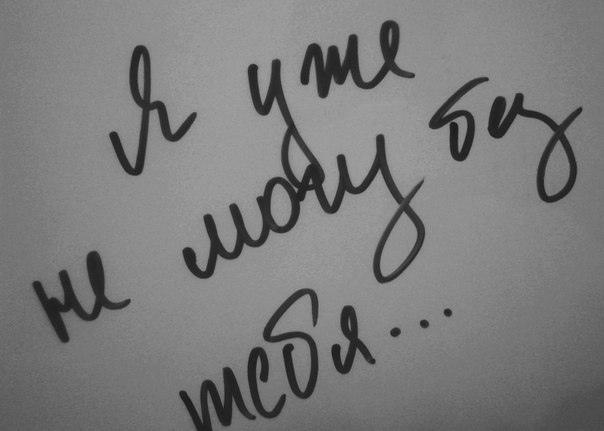 я уже
не могу без
тебя...